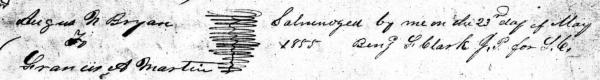 Angus N Bryan
To
Francis A Martin
Solemnized by me on the 23rd day of May
1855 Benj F. Clark J.P. for S.C.